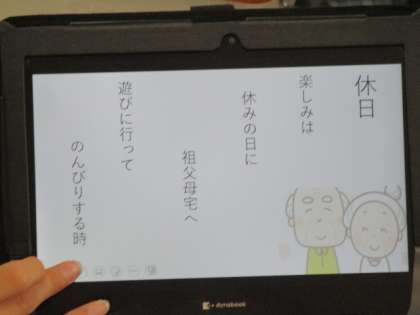 休日
楽しみは
休みの日に
祖父母宅へ
遊びに行って
のんびりする時
dynabook